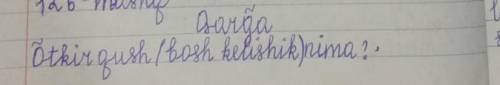 126-mashq
Qarğa
Õtkir qush (bosh kelishik) nima?.